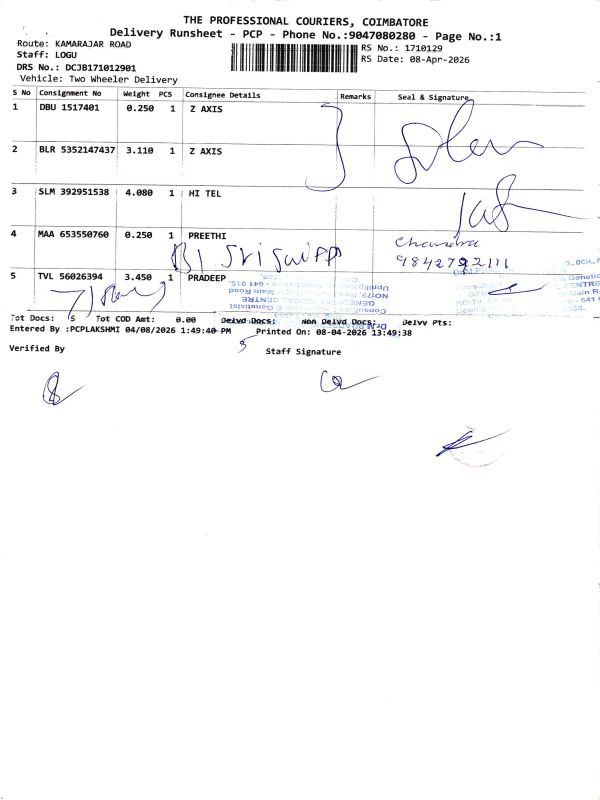 THE PROFESSIONAL COURIERS, COIMBATORE
Delivery Runsheet - PCP - Phone No.:9047080280 - Page No.:1
Route: KAMARAJAR ROAD
RS No.: 1710129
Staff: LOGU
RS Date: 08-Apr-2026
DRS No.: DCJB171012901
Vehicle: Two Wheeler Delivery
S No Consignment No Weight PCS Consignee Details Remarks Seal & Signature
1 DBU 1517401 0.250 1 Z AXIS
2 BLR 5352147437 3.110 1 Z AXIS
3 SLM 392951538 4.080 1 HI TEL
4 MAA 653550760 0.250 1 PREETHI
Chandra
9842792111
5 TVL 56026394 3.450 1 PRADEEP
Tot Docs: 5 Tot COD Amt: 0.00 Delvd Docs: Non Delvd Docs: Delvy Pts:
Entered By :PCPLAKSHMI 04/08/2026 1:49:40 PM Printed On: 08-04-2026 13:49:38
5
Verified By
Staff Signature